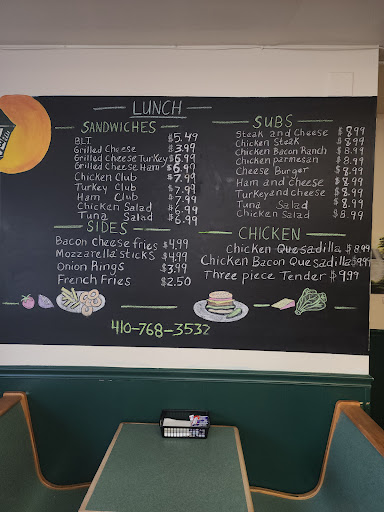 LUNCH
SANDWICHES
BLT $5.49
Grilled Cheese $3.99
Grilled Cheese Turkey $6.99
Grilled Cheese Ham $6.99
Chicken Club $7.99
Turkey Club $7.99
Ham Club $7.99
Chicken Salad $6.99
Tuna Salad $6.99
SIDES
Bacon Cheese fries $4.99
Mozzarella sticks $4.99
Onion Rings $3.99
French Fries $2.50
SUBS
Steak and Cheese $8.99
Chicken Steak $8.99
Chicken Bacon Ranch $8.99
Chicken parmesan $8.99
Cheese Burger $8.99
Ham and cheese $8.99
Turkey and cheese $8.99
Tuna Salad $8.99
Chicken Salad $8.99
CHICKEN
Chicken Quesadilla $8.99
Chicken Bacon Quesadilla $9.99
Three piece Tender $9.99
410-768-3532